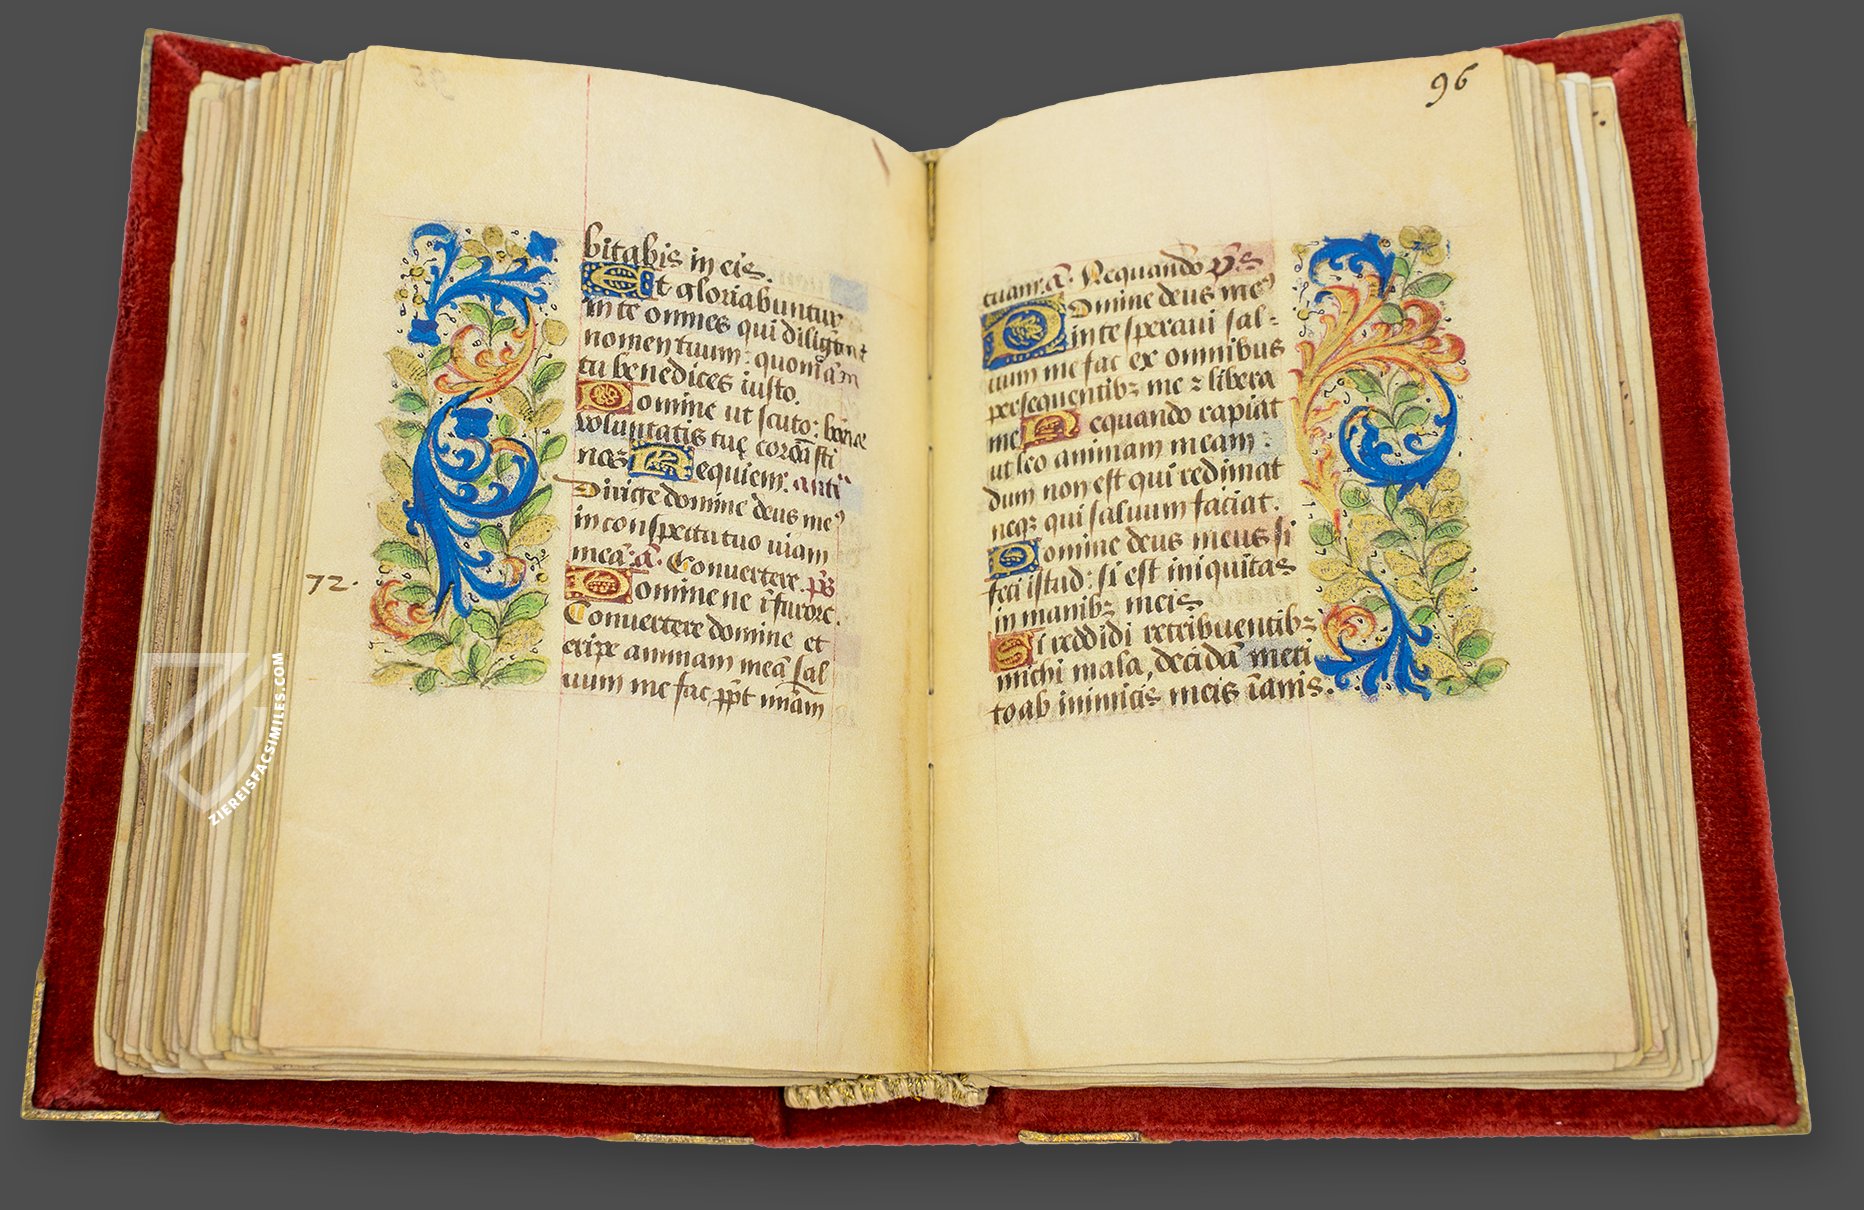 bitabis in eis.
Et gloriabuntur
in te omnes qui diligunt
nomen tuum: quoniã m
tu benedices iusto.
Domine ut scuto: bonæ
voluntatis tuę coronasti
nos Requiem: anti
Dirige domine deus meꝰ
in conspectu tuo uiam
meã: a᷒. Convertere. p̃s
Domine ne ĩ furore.
Convertere domine et
eripe animam meã sal
uum me fac ꝓpt̃ miã̃m
72.
96
tuam. a᷒. Nequando p̃s
Domine deus meꝰ
in te speraui sal-
uum me fac ex omnibus
persequentibꝫ me ⁊ libera
me Nequando rapiat
ut leo animam meam:
dum non est qui redimat
neqꝫ qui saluum faciat.
Domine deus meus si
feci istud: si est iniquitas
in manibꝫ meis
Si reddidi retribuentibꝫ
michi mala, decidã meri
to ab inimicis meis ĩanis.
ZIEREISFACSIMILES.COM